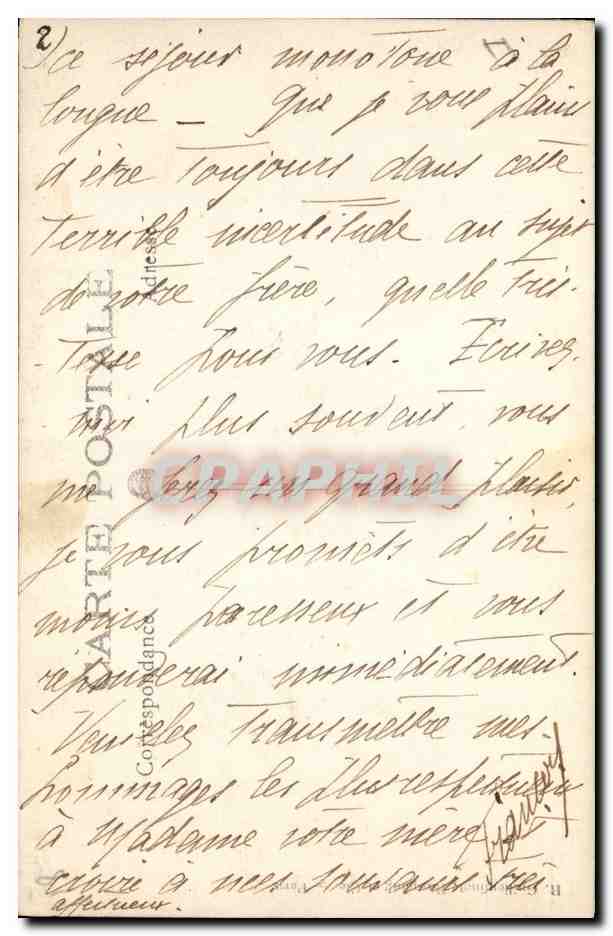 2) ce séjour monotone à la
longue — que je vous plains
d'être toujours dans cette
terrible incertitude au sujet
de votre frère, quelle tris-
tesse pour vous. Ecrivez
moi plus souvent, vous
me ferez un grand plaisir,
je vous promets d'être
moins paresseux et vous
répondrai immédiatement.
Veuillez transmettre mes
hommages les plus respectueux
à Madame votre mère
croire à mes souvenirs très
affectueux.
François
CARTE POSTALE
Correspondance
Adresse
CPAPHIL.COM